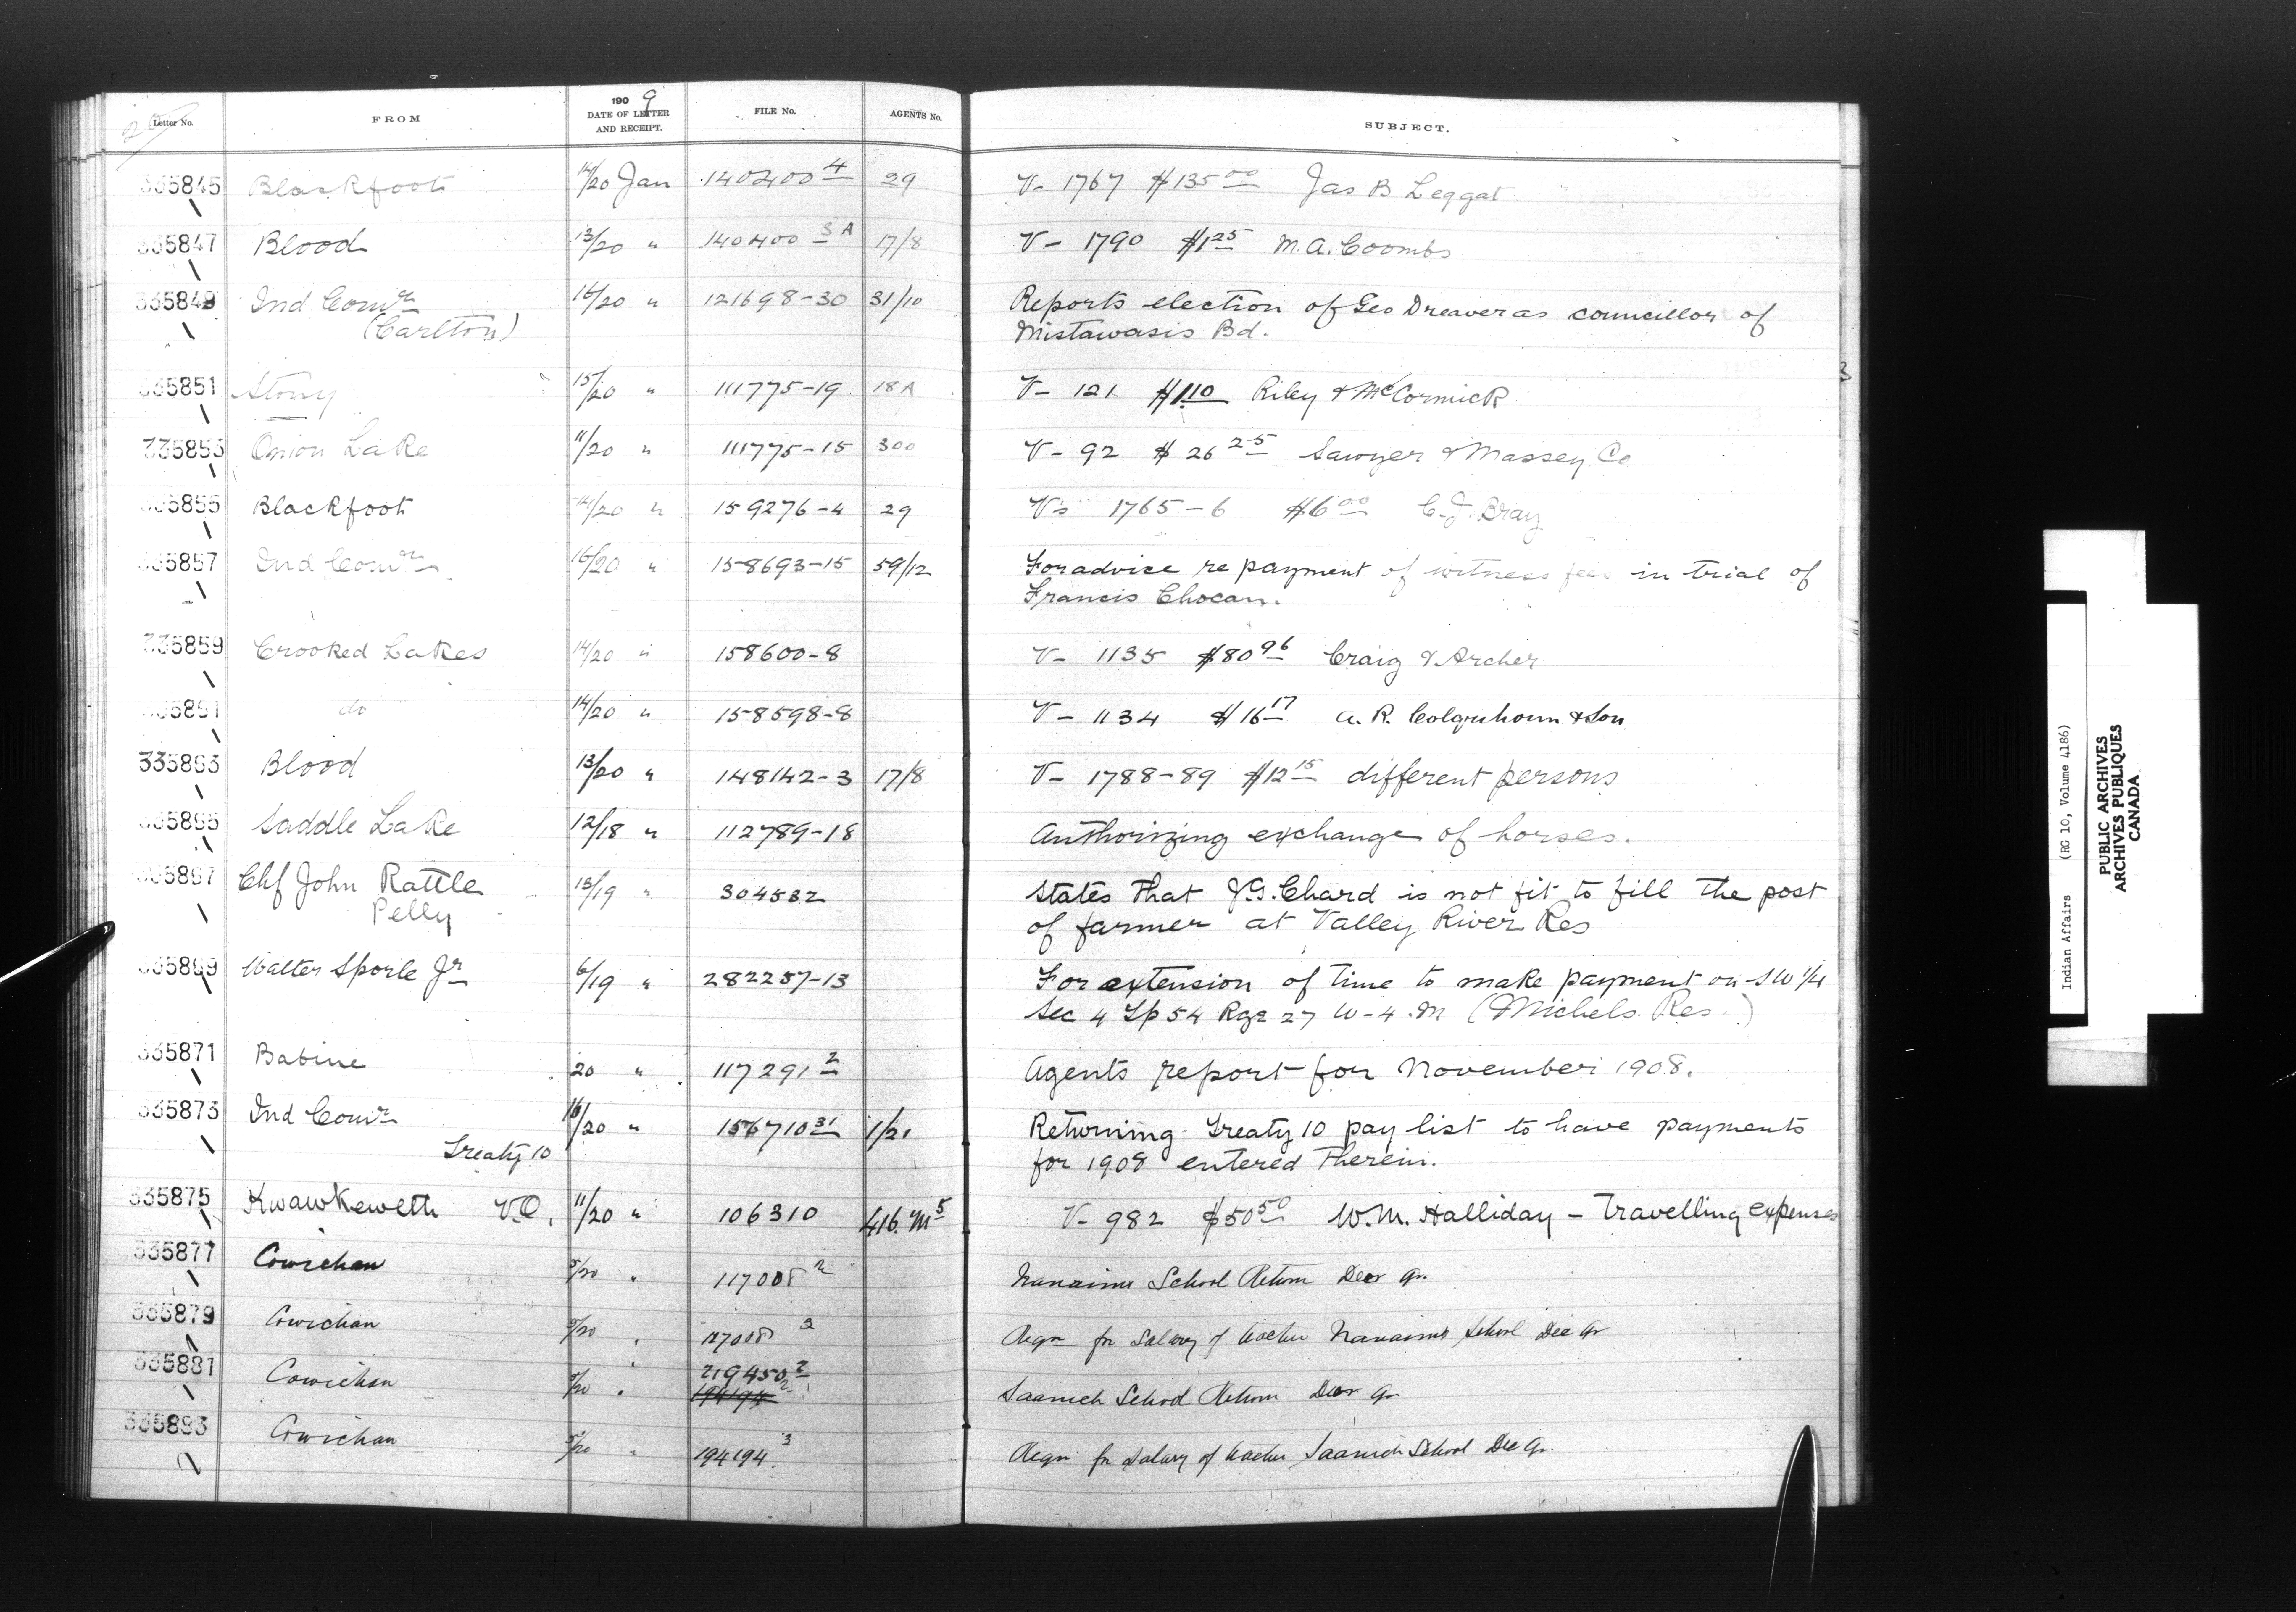 190 9
Letter No. FROM DATE OF LETTER AND RECEIPT. FILE No. AGENTS No. SUBJECT.
335845 Blackfoot 14/20 Jan 140400 4 29 V- 1767 $135 00 Jas B Leggat
335847 Blood 13/20 " 140400 3A 17/8 V- 1790 $1 25 M.A. Coombs
335849 Ind Comr 16/20 " 121698-30 31/10 Reports election of Geo Dreaver as councillor of
(Carlton) Mistawasis Bd.
335851 Stony 15/20 " 111775-19 18A V- 121 $1 10 Riley & McCormick
335853 Onion Lake 11/20 " 111775-15 300 V- 92 $26 25 Sawyer & Massey Co
335855 Blackfoot 14/20 " 159276-4 29 Vs 1765-6 $6 00 C.J. Bray
335857 Ind Comr 16/20 " 158693-15 59/12 For advice re payment of witness fees in trial of
Francis Chocan.
335859 Crooked Lakes 14/20 " 158600-8 V- 1135 $80 96 Craig & Archer
335861 do 14/20 " 158598-8 V- 1134 $16 17 A. R. Colquhoun & Son
335863 Blood 13/20 " 148142-3 17/8 V- 1788-89 $12 15 different persons
335865 Saddle Lake 12/18 " 112789-18 Authorizing exchange of horses.
335867 Chf John Rattle 13/19 " 304532 States that J.G. Chard is not fit to fill the post
Pelly of farmer at Valley River Res
335869 Walter Sporle Jr 6/19 " 282257-13 For extension of time to make payment on SW 1/4
Sec 4 Tp 54 Rge 27 W-4.M (Michels Res.)
335871 Babine 20 " 117291 2 Agents report for November 1908.
335873 Ind Comr 16/20 " 156710 31 1/21 Returning Treaty 10 pay list to have payments
Treaty 10 for 1908 entered therein.
335875 Kwawkewlth V.O. 11/20 " 106310 416 M 5 V- 982 $50 50 W.M. Halliday - Travelling expenses
335877 Cowichan 5/20 " 117008 2 Nanaimo School Return Decr Qr.
335879 Cowichan 5/20 " 117008 3 Reqn for salary of teacher Nanaimo School Dec Qr
335881 Cowichan 5/20 " 219450 2 Saanich School Return Decr Qr
194194 2
335883 Cowichan 5/20 " 194194 3 Reqn for salary of teacher Saanich School Dec Qr.
3
Indian Affairs (RG 10, Volume 4186)
PUBLIC ARCHIVES
ARCHIVES PUBLIQUES
CANADA